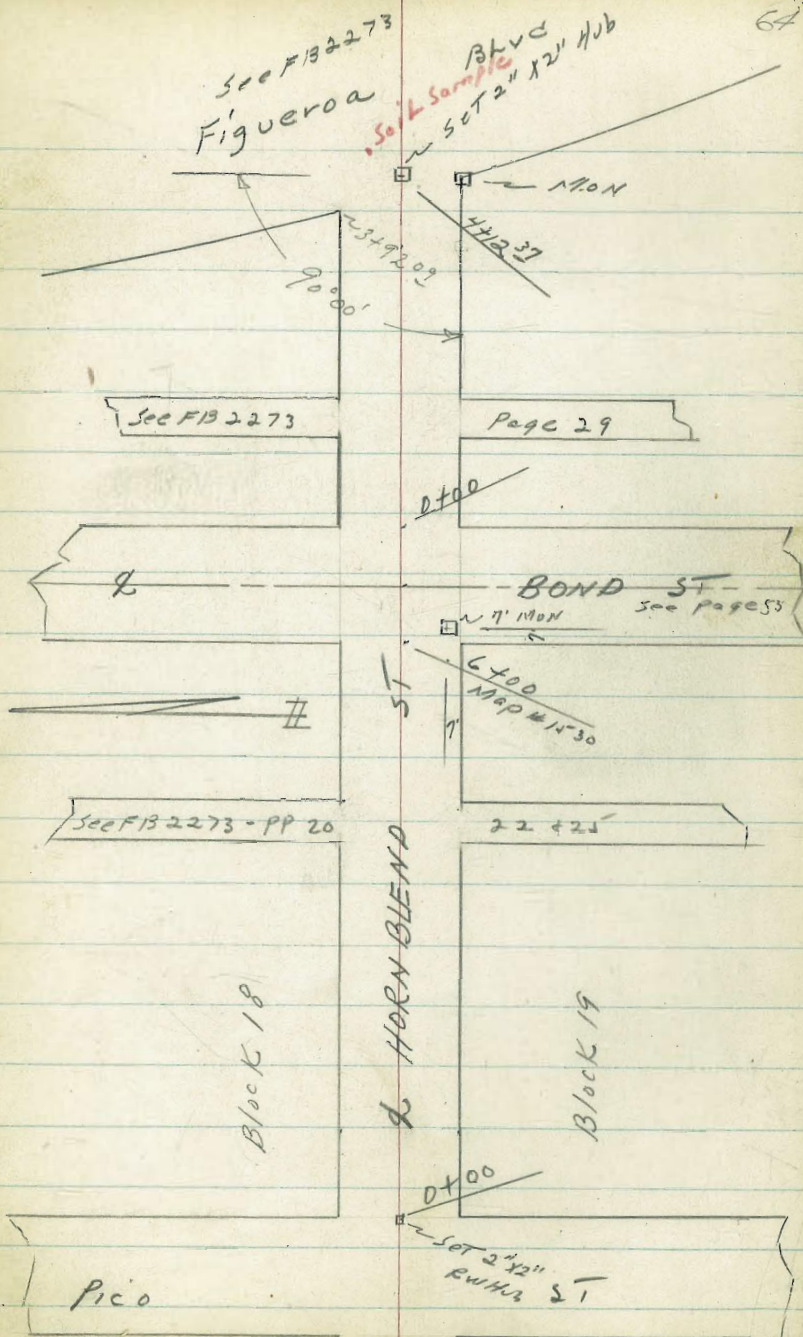 64
See FB 2273
Figueroa Blvd
Soil Sample
Set 2" x 2" Hub
MON
3+92.09
4+12.37
90°00'
See FB 2273 Page 29
0+00
℄ BOND ST
See page 55
7' MON
7'
6+00
Map # 1530
7'
ST
See FB 2273 - PP 20 22 & 25
℄ HORNBLEND
Block 18
Block 19
0+00
Set 2" x 2"
RW Hub
Pico ST